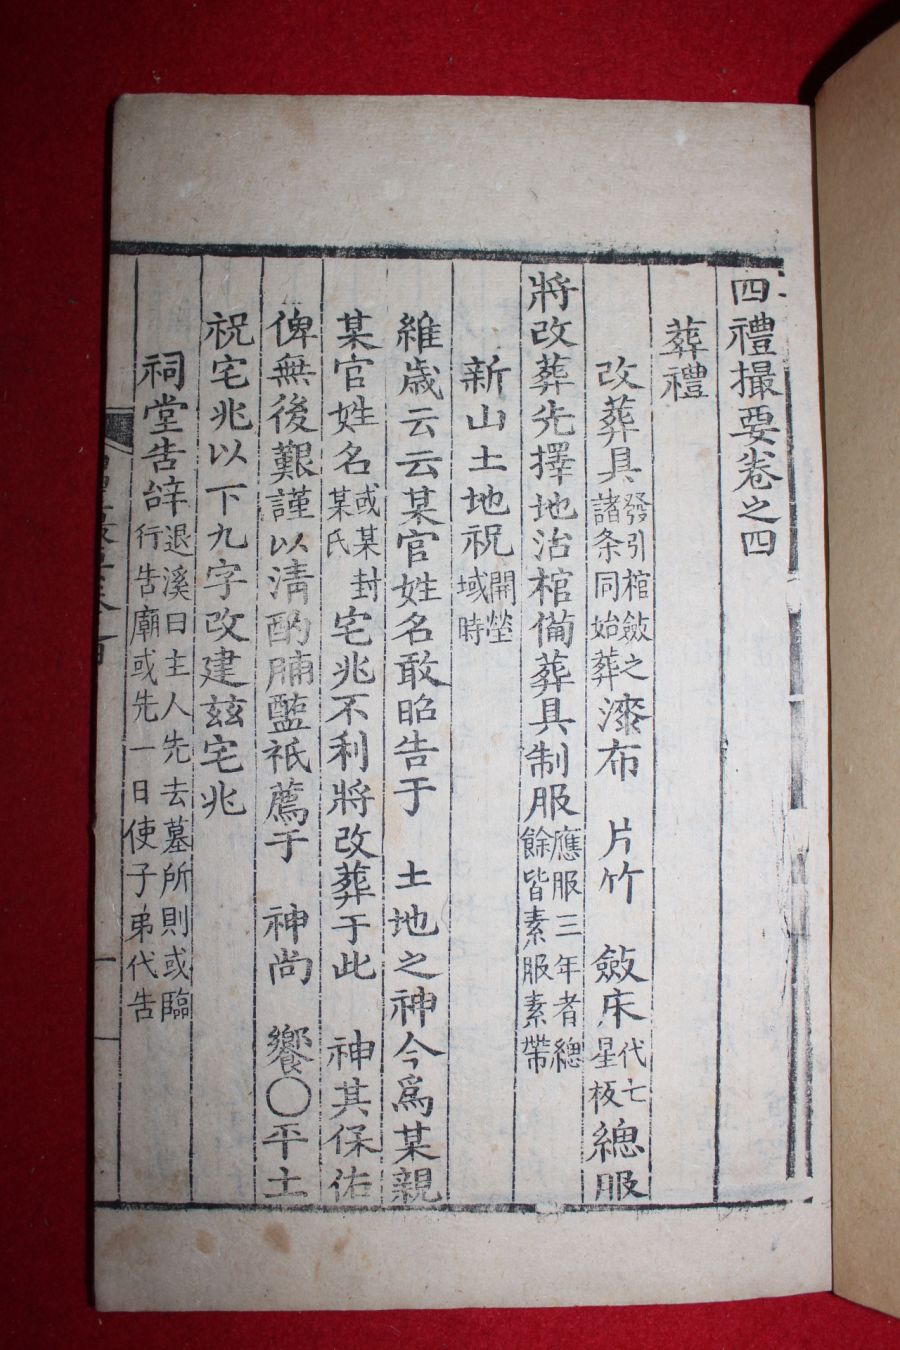 四禮撮要卷之四
葬禮
改葬具 發引棺斂之諸条同始葬 漆布 片竹 斂床 代七星板 緦服
將改葬先擇地治棺備葬具制服 應服三年者緦餘皆素服素帶
新山土地祝 開塋域時
維歲云云某官姓名敢昭告于 土地之神今爲某親
某官姓名 或某封某氏 宅兆不利將改葬于此 神其保佑
俾無後艱謹以淸酌脯醢祗薦于 神尙 饗○平土
祝宅兆以下九字改建玆宅兆
祠堂告辞 退溪曰主人先去墓所則或臨行告廟或先一日使子弟代告